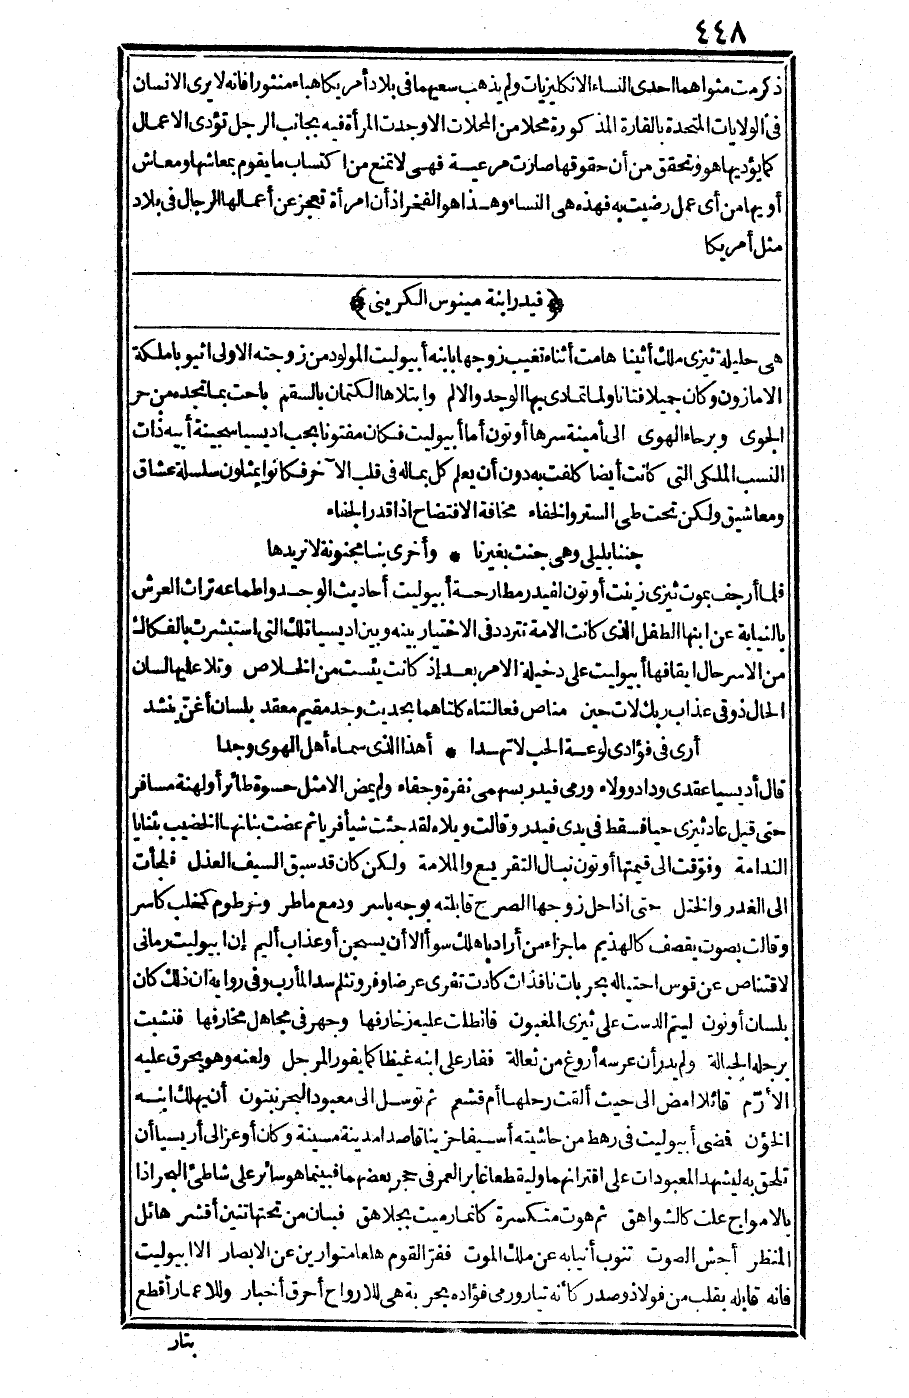 ٤٤٨
ذكرمت مثواهما احدى النساء الانكليزيات ولم يذهب سعيهما فى بلاد أمريكا هباء منثورا فانه لا يرى الانسان
فى الولايات المتحدة بالقارة المذكورة محلا من المحلات الا وجدت المرأة فيه بجانب الرجل تؤدى الاعمال
كما يؤديها هو وتحقق من أن حقوقها صارت مرعية فهى لا تمنع من اكتساب ما يقوم بمعاشها ومعاش
أويها من أى عمل رضيت به فهذه هى النساء وهذا هو الفخر اذ أن امرأة تعجز عن أعمالها الرجال فى بلاد
مثل أمريكا
﴿فيدر ابنة مينوس الكريتى﴾
هى حليلة تيزى ملك أثينا هامت أثناء تغيب زوجها بابنه أبيوليت المولود من زوجته الاولى انيو با ملكة
الامازون وكان جميلا فتانا ولما تمادى بها الوجد والالم وابتلاها الكتمان بالسقم باحت بما تجده من حر
الجوى وبرحاء الهوى الى أمينة سرها أونون أما أبيوليت فكان مفتونا بحب اديسيا سجينة أبيه ذات
النسب الملكى التى كانت أيضا كلفت به دون أن يعلم كل بما له فى قلب الآخر فكانوا يمثلون سلسلة عشاق
ومعاشيق ولكن تحت طى الستر والخفاء مخافة الافتضاح اذا قدر الجفاء
جننا بليلى وهى جنت بغيرنا * وأخرى بنا مجنونة لا نريدها
فلما أرجف بموت ثيزى زينت أونون لفيدر مطارحة أبيوليت أحاديث الوجد واطماعه تراث العرش
بالنيابة عن ابنها الطفل الذى كانت الامة تتردد فى الاختيار بينه وبين اديسيا تلك التى استبشرت بالفكاك
من الاسر حال ايقافها أبيوليت على دخيلة الامر بعد إذ كانت يئست من الخلاص وتلا عليها لسان
الحال ذوقى عذاب ربك لات حين مناص فعالنتاه كلتاهما بحديث وجد مقيم مقعد بلسان أغن ينشد
أرى فى فؤادى لوعة الحب لا تهدا * أهذا الذى سماه أهل الهوى وجدا
قال أديسيا عقدى وداد وولاء ورمى فيدر بسهمى نفرة وجفاء ولم يمض الا مثل حسوة طائر أو لهنة مسافر
حتى قيل عاد ثيزى حيا فسقط فى يدى فيدر وقالت ويلاه لقد جئت شيأ فريا ثم عضت بنانها الخضيب بثنايا
الندامة وفوقت الى قيمتها أونون نبال التقريع والملامة ولكن كان قد سبق السيف العذل فلجأت
الى الغدر والختل حتى اذا حل زوجها الصرح قابلته بوجه باسر ودمع ماطر وخرطوم كمخلب كاسر
وقالت بصوت يقصف كالهذيم ما جزاء من أراد باهلك سوأ الا أن يسجن أو عذاب أليم إن ابيوليت رمانى
لاقتناص عن قوس احتياله بحربات نافذات كادت تفرى عرضا وفر وتثلم سد المأرب وفى رواية ان ذلك كان
بلسان أونون ليتم الدست على ثيزى المغبون فانطلت عليه زخارفها وجهر فى مجاهل مخارفها فنشبت
برجله الحبالة ولم يدر أن عرسه أروغ من ثعالة ففار على ابنه غيظا كما يفور المرجل ولعنه وهو يحرق عليه
الأرّم قائلا امض الى حيث ألقت رحلها أم قشعم ثم توسل الى معبود البحر نبتون أن يهلك ابنه
الخؤن فمضى أبيوليت فى رهط من حاشيته أسيفا حزينا قاصدا مدينة مسينة وكان أوعز الى أريسيا أن
تلحق به ليشهد المعبودات على اقترانهما وليقطعا غابر العمر فى حجر بعضهما فبينما هو سائر على شاطئ البحر اذا
بالامواج علت كالشواهق ثم هوت متكسرة كانما رميت بجلاهق فبان من تحتها تنين أقشر هائل
المنظر أجش الصوت تنوب أنيابه عن ملك الموت ففر القوم هلعا متوارين عن الابصار الا ابيوليت
فانه قابله بقلب من فولاذ وصدر كأنه تيار ورمى فؤاده بحربة هى للارواح أحرق أخبار وللاعمار أقطع
بتار